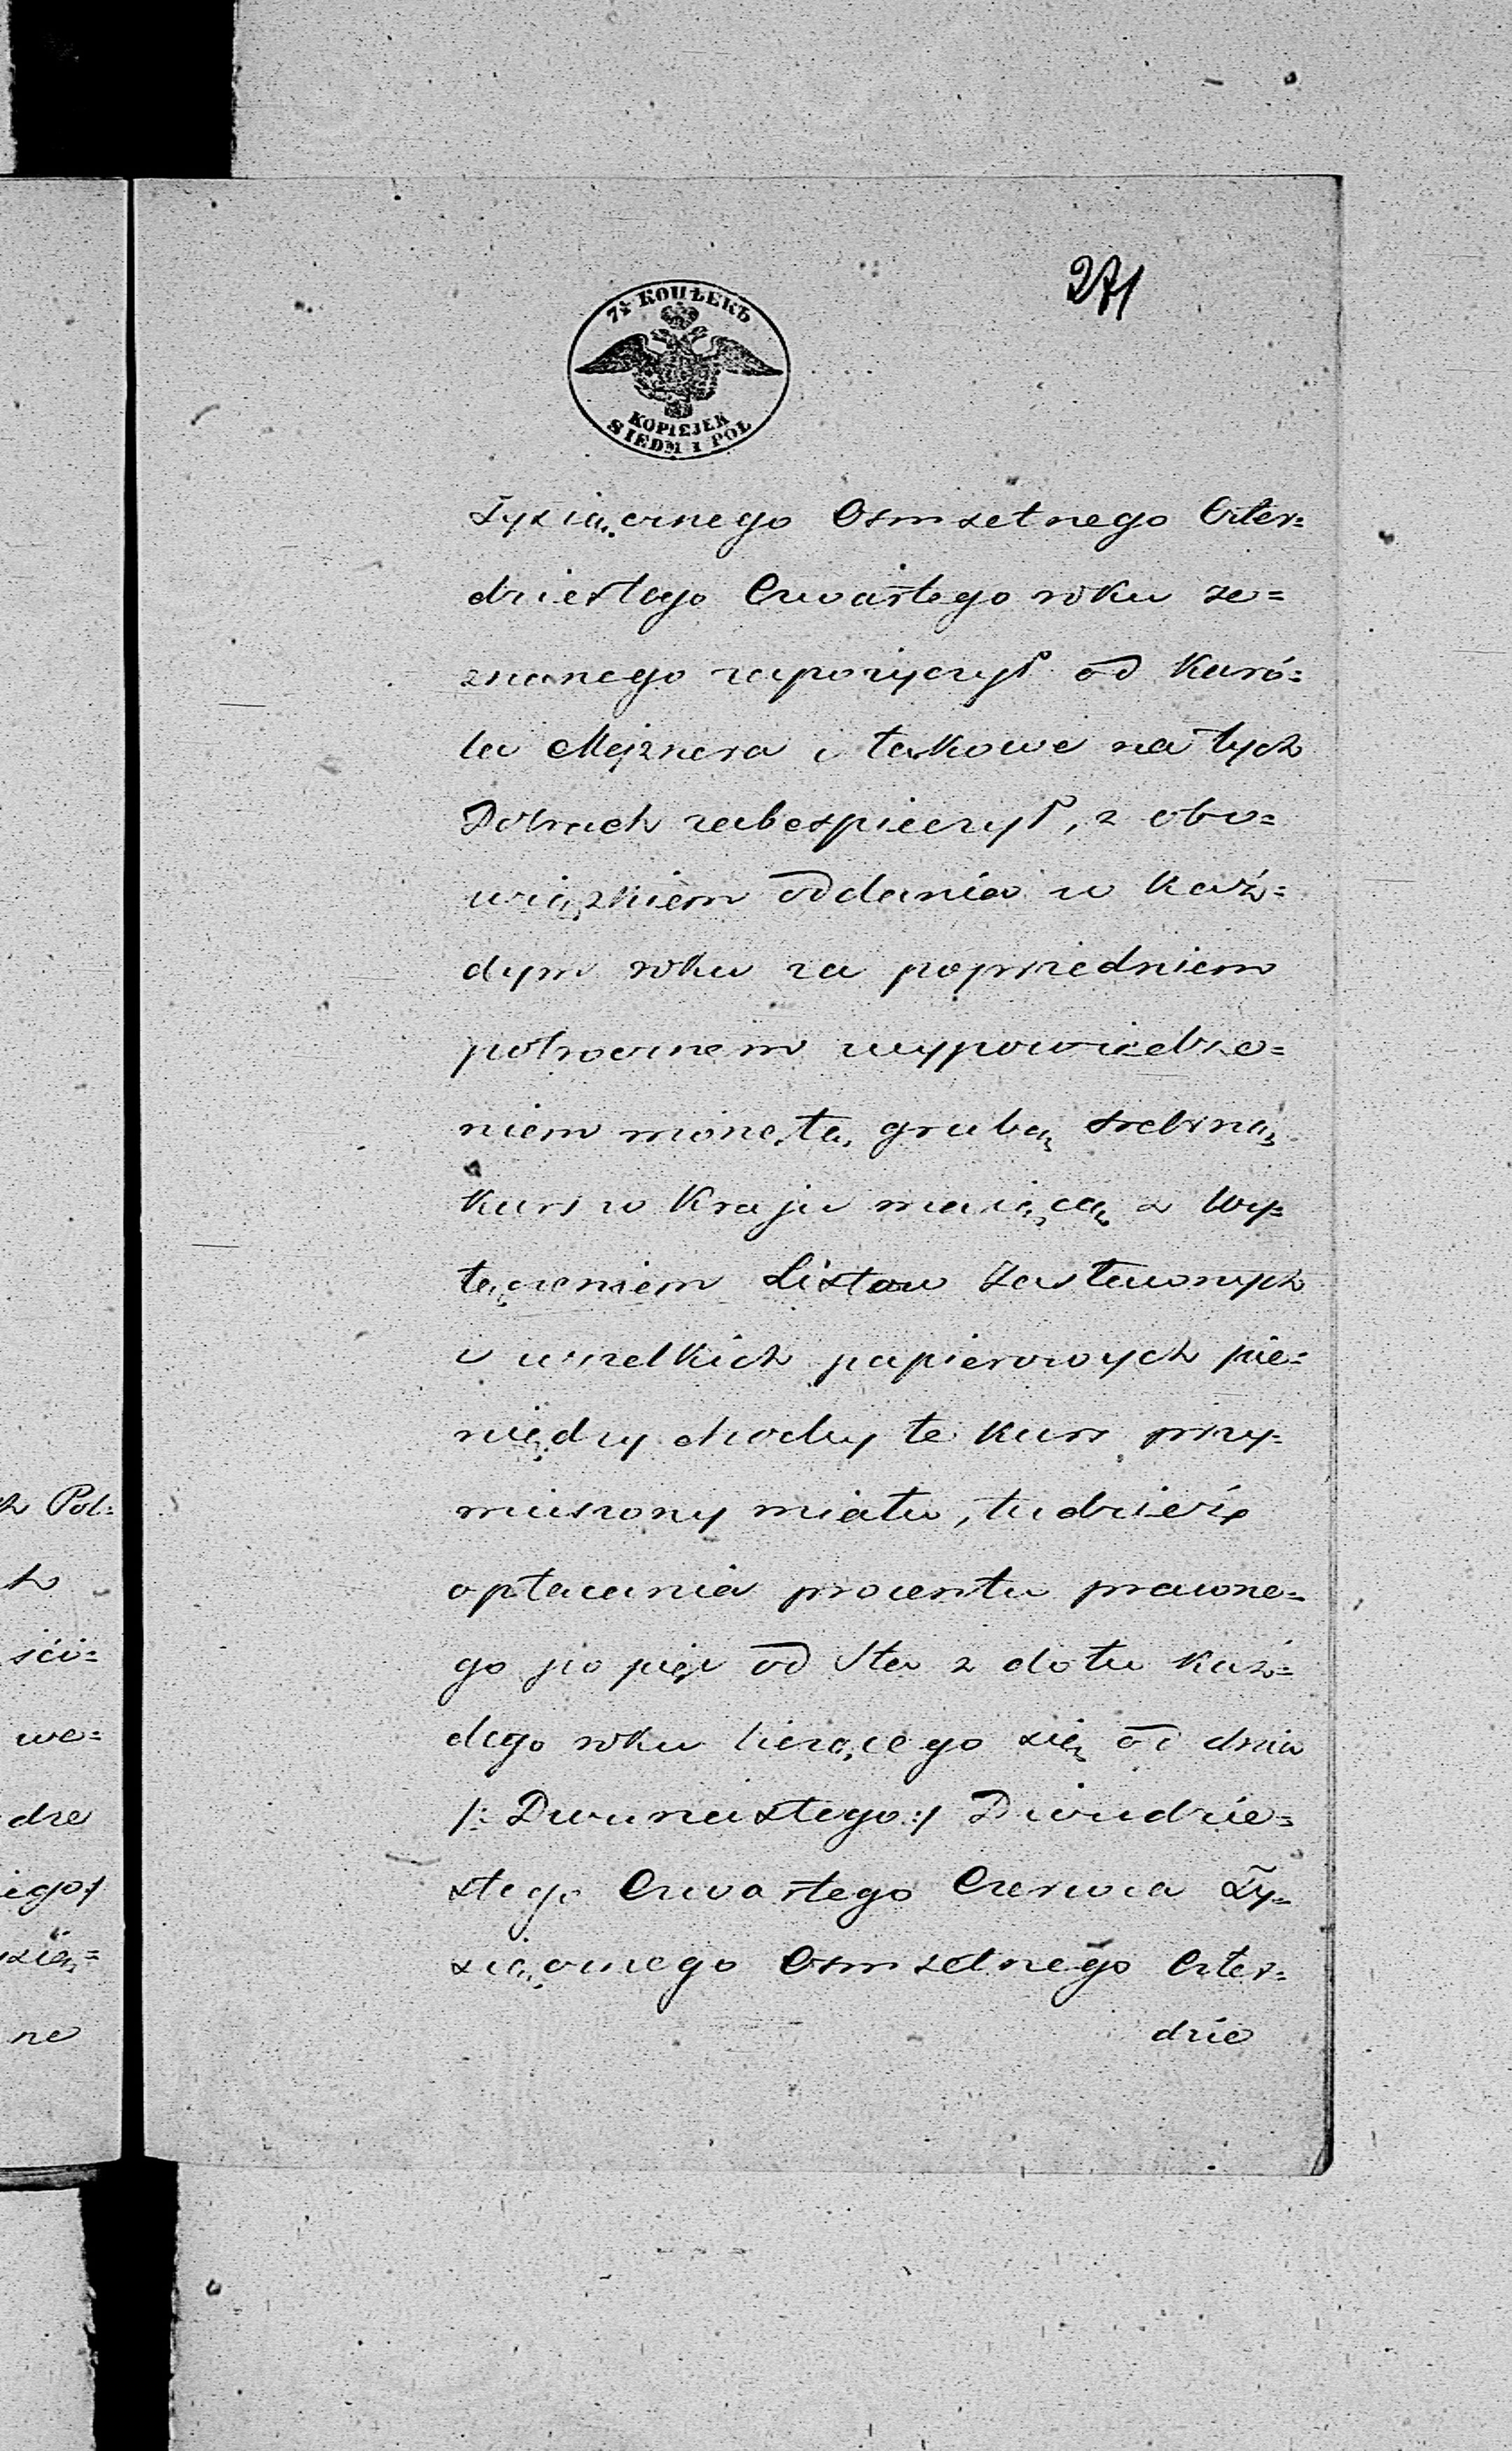 271
7½ КОПѢЕКЪ
KOPIEJEK
SIEDM I PÓŁ
Tysiącznego Osmsetnego Czter=
dziestego Czwartego roku ze=
znanego zapożyczył od Karó=
la Mejznera i takowe na tych
Dobrach zabespieczył, z obo=
wiązkiem oddania w każ=
dym roku za poprzedniem
półrocznem wypowiedze=
niem monetą grubą srebrną
kurs w Kraju maiącą z Wy=
łączeniem Listow Zastawnych
i wszelkich papierowych pie=
niędzy choćby te kurs przy=
muszony miały, tudzież
opłacania procentu prawne=
go po pięć od Sta z dołu każ=
dego roku liczącego się od dnia
/: Dwunastego :/ Dwudzie=
stego Czwartego Czerwca Ty=
siącznego Osmsetnego Czter=
dzie
Pol=
ści=
we=
dze
iego:/
sią=
ne